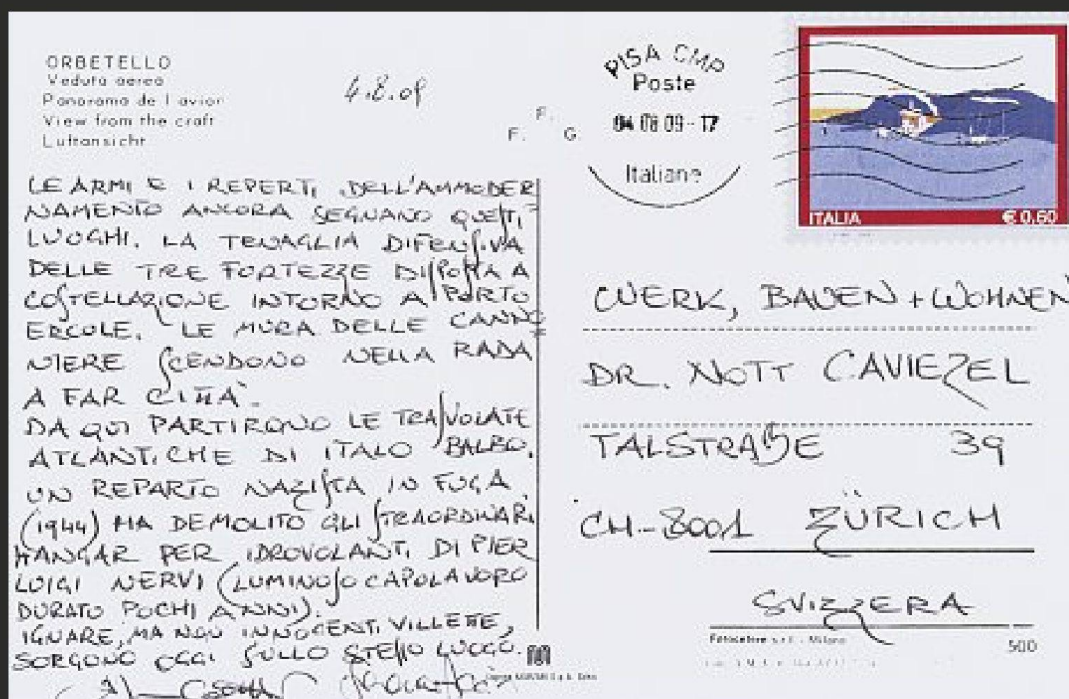 ORBETELLO
Veduta aerea
Panorama de l avion
View from the craft
Luftansicht
4.8.09
F. F. G
PISA CMP
Poste
04 08 09 - 17
Italiane
ITALIA € 0,60
LE ARMI E I REPERTI DELL'AMMODER
NAMENTO ANCORA SEGNANO QUESTI
LUOGHI. LA TENAGLIA DIFENSIVA
DELLE TRE FORTEZZE DISPOSTA A
COSTELLAZIONE INTORNO A PORTO
ERCOLE. LE MURA DELLE CANNO
NIERE SCENDONO NELLA RADA
A FAR CITTÀ.
DA QUI PARTIRONO LE TRASVOLATE
ATLANTICHE DI ITALO BALBO.
UN REPARTO NAZISTA IN FUGA
(1944) HA DEMOLITO GLI STRAORDINARI
HANGAR PER IDROVOLANTI DI PIER
LUIGI NERVI (LUMINOSO CAPOLAVORO
DURATO POCHI ANNI).
IGNARE, MA NON INNOCENTI VILLETTE,
SORGONO OGGI SULLO STESSO LUOGO.
WERK, BAUEN + WOHNEN
DR. NOTT CAVIEZEL
TALSTRAßE 39
CH-8001 ZÜRICH
SVIZZERA
Milano
500